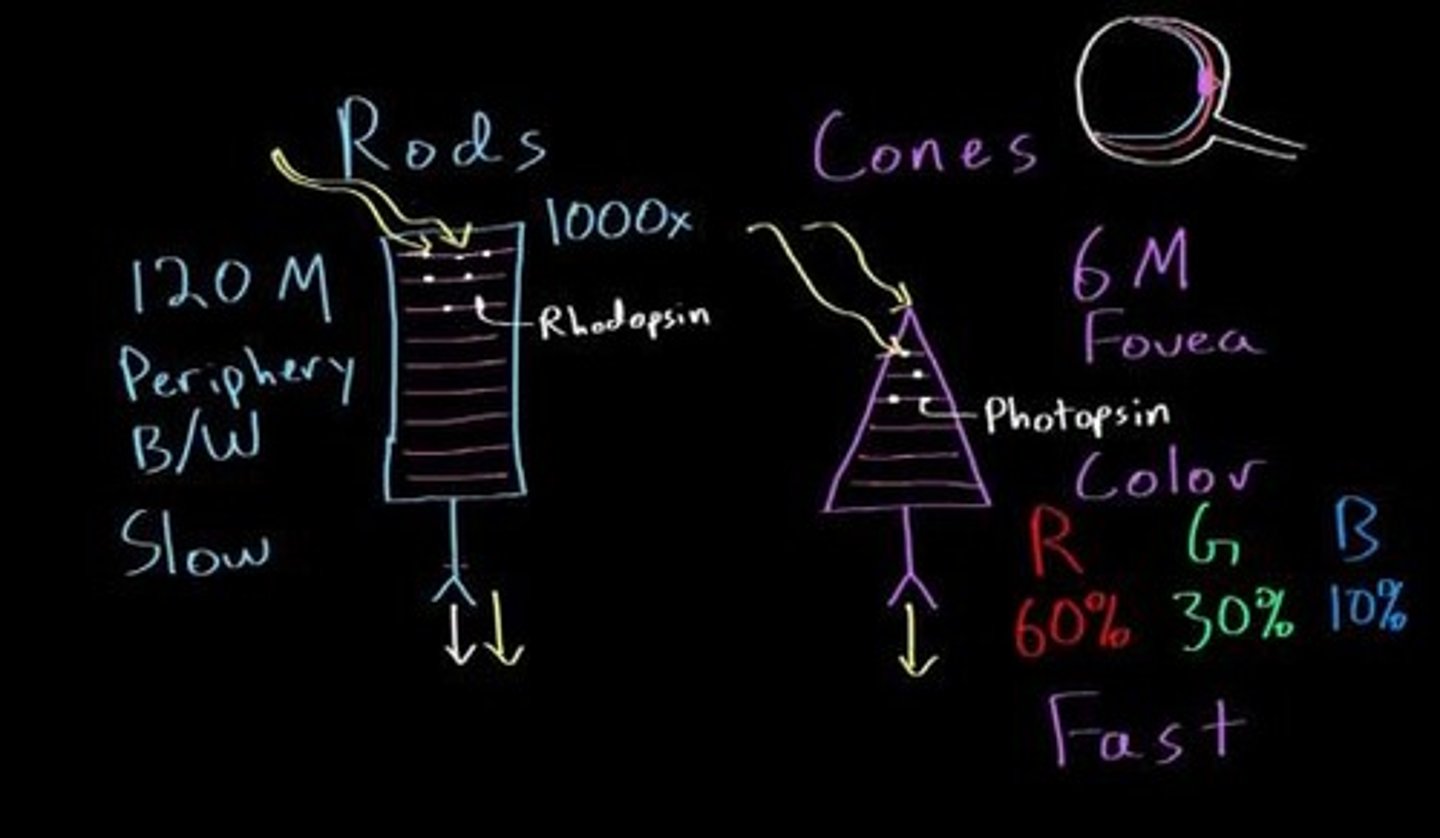 Rods
1000x
120 M
Rhodopsin
Periphery
B/W
Slow
Cones
6 M
Fovea
Photopsin
Color
R G B
60% 30% 10%
Fast